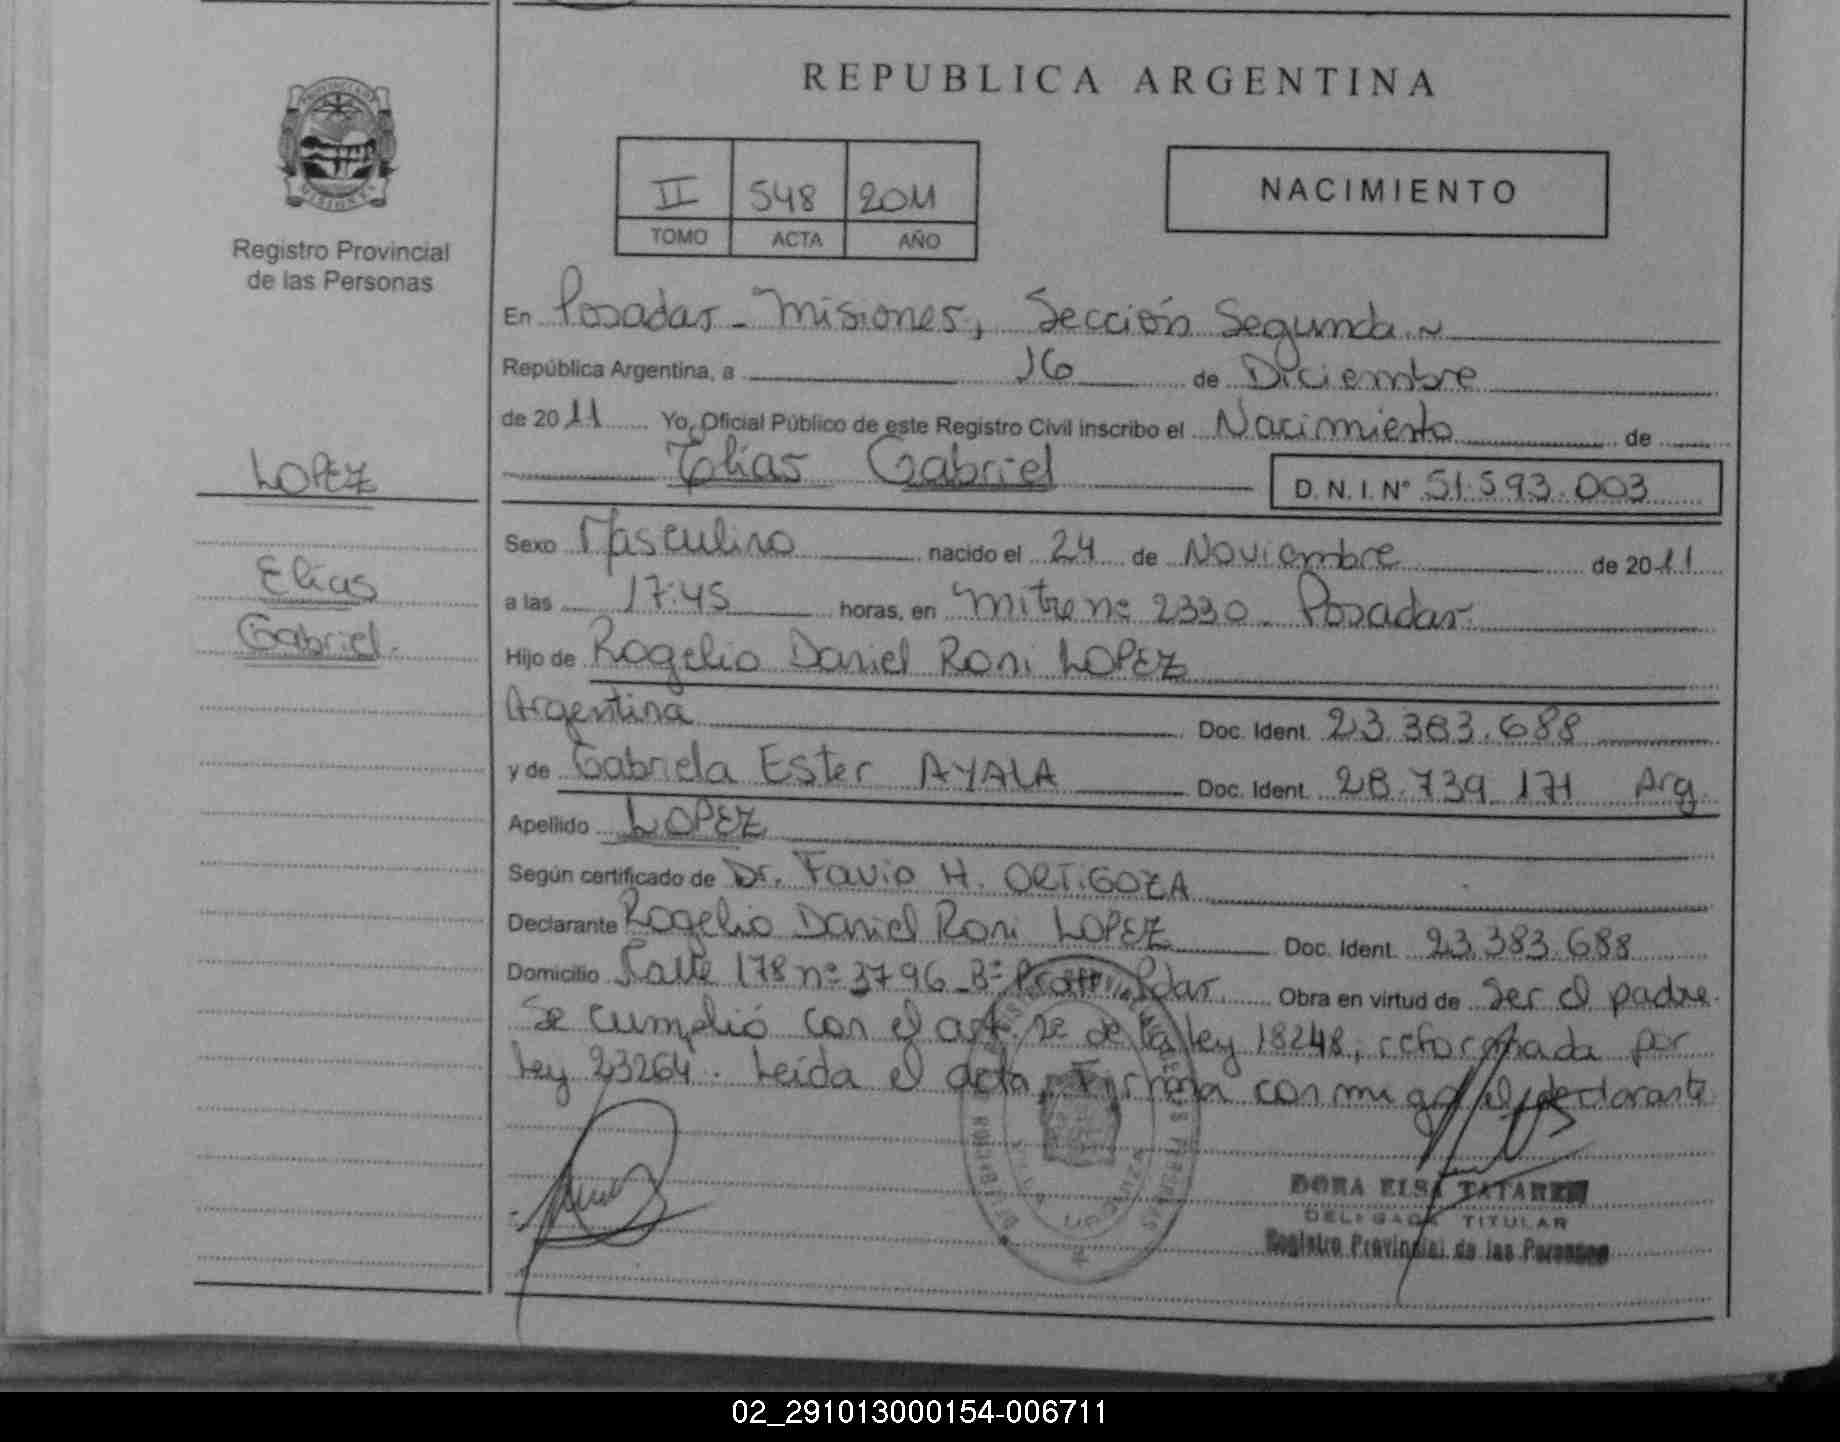 REPUBLICA ARGENTINA
II 548 2011
TOMO ACTA AÑO
NACIMIENTO
Registro Provincial
de las Personas
LOPEZ
Elías
Gabriel.
En Posadas - Misiones, Sección Segunda
República Argentina, a 16 de Diciembre
de 2011 Yo, Oficial Público de este Registro Civil inscribo el Nacimiento de
Elías Gabriel D.N.I. N° 51.593.003
Sexo Masculino nacido el 24 de Noviembre de 2011
a las 17:45 horas, en Mitre nº 2330 - Posadas.
Hijo de Rogelio Daniel Roni LOPEZ
Argentina Doc. Ident. 23.383.688
y de Gabriela Ester AYALA Doc. Ident. 28.739.171 Arg.
Apellido LOPEZ
Según certificado de Dr. Favio H. ORTIGOZA
Declarante Rogelio Daniel Roni LOPEZ Doc. Ident. 23.383.688
Domicilio Calle 178 nº 3796 - Bº Pdas. Obra en virtud de Ser el padre.
Se cumplió con el art. de la ley 18248, reformada por
Ley 23264. Leída el acta, Firma conmigo el declarante
DORA ELSA
DELEGADA TITULAR
Registro Provincial de las Personas
02_291013000154-006711